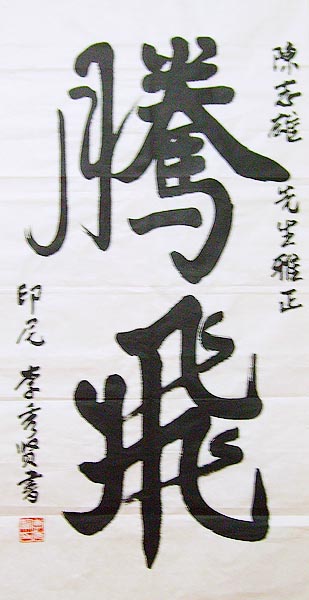 陳志雄 先生雅正
騰飛
印尼 李秀賢書